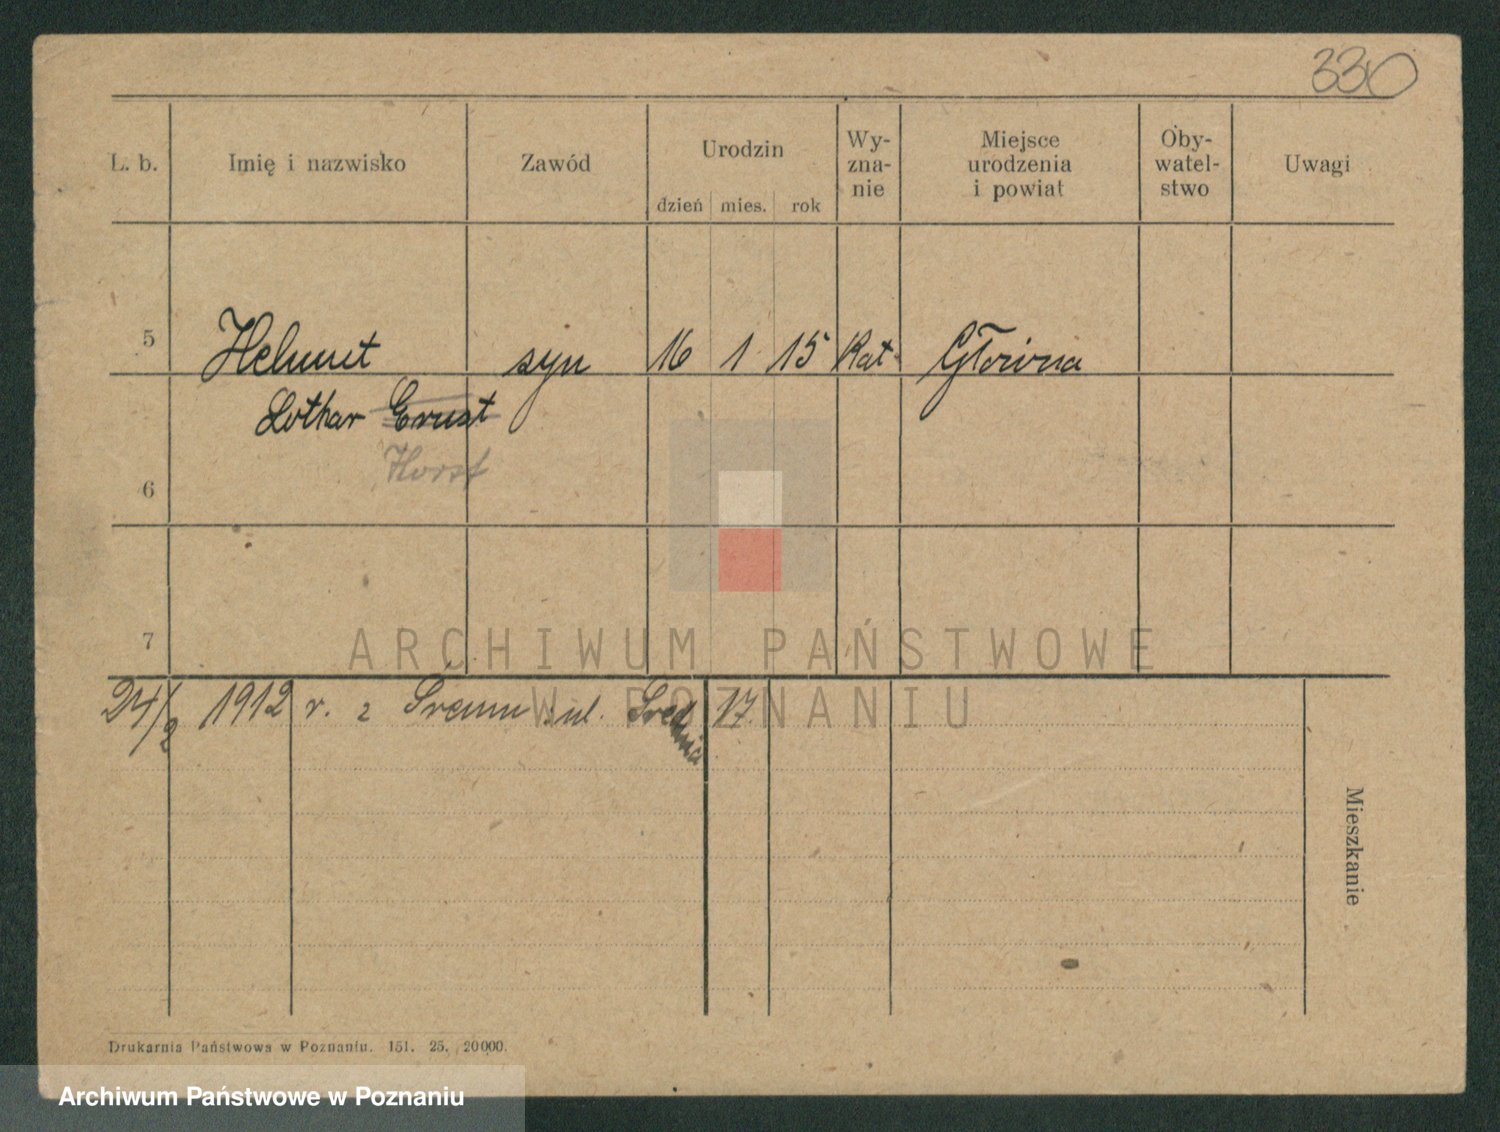 330
L. b. Imię i nazwisko Zawód Urodzin dzień mies. rok Wy-zna-nie Miejsce urodzenia i powiat Oby-watel-stwo Uwagi
5 Helmut syn 16 1 15 Kat Główna
Lothar Ernst
Horst
6
7
ARCHIWUM PAŃSTWOWE
W POZNANIU
24/2 1912 r. z Śremu ul. Średnia 17.
Mieszkanie
Drukarnia Państwowa w Poznaniu. 151. 25. 20000.
Archiwum Państwowe w Poznaniu